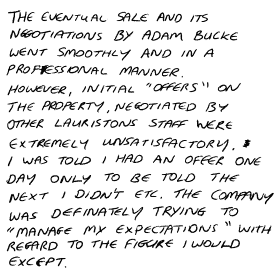 THE EVENTUAL SALE AND ITS
NEGOTIATIONS BY ADAM BUCKE
WENT SMOOTHLY AND IN A
PROFESSIONAL MANNER.
HOWEVER, INITIAL "OFFERS" ON
THE PROPERTY, NEGOTIATED BY
OTHER LAURISTONS STAFF WERE
EXTREMELY UNSATISFACTORY.
I WAS TOLD I HAD AN OFFER ONE
DAY ONLY TO BE TOLD THE
NEXT I DIDN'T ETC. THE COMPANY
WAS DEFINATELY TRYING TO
"MANAGE MY EXPECTATIONS" WITH
REGARD TO THE FIGURE I WOULD
EXCEPT.